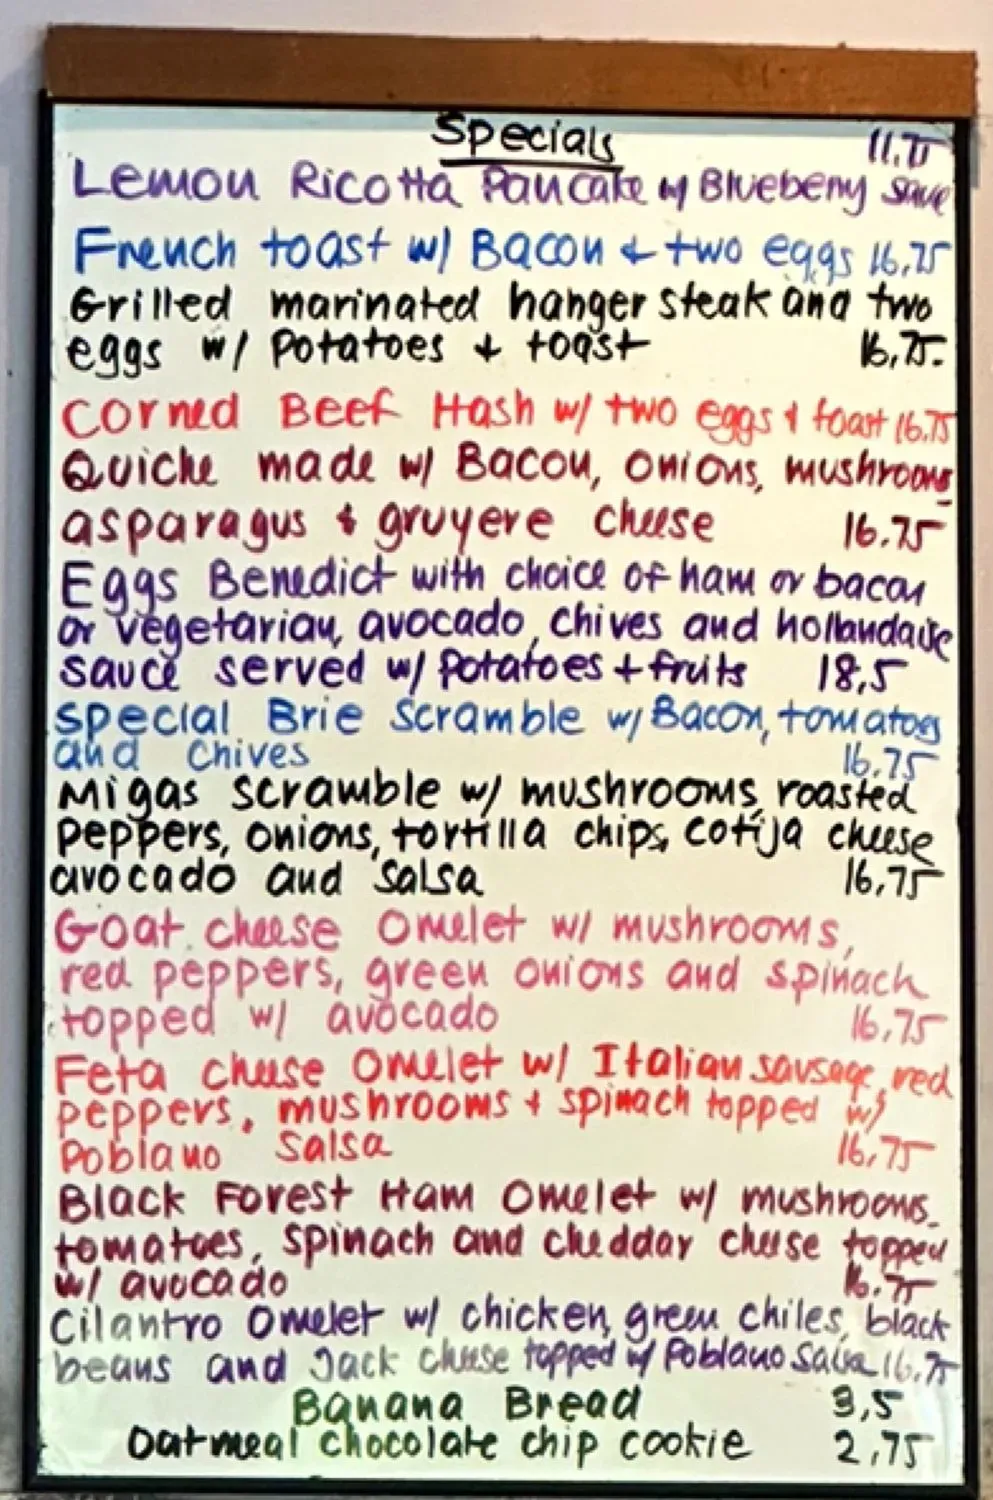 Specials
11.75
Lemon Ricotta Pancake w/ Blueberry sauce
French toast w/ Bacon & two eggs 16,75
Grilled marinated hanger steak and two
eggs w/ Potatoes + toast 16,75.
Corned Beef Hash w/ two eggs & toast 16.75
Quiche made w/ Bacon, onions, mushrooms
asparagus & gruyere cheese 16.75
Eggs Benedict with choice of ham or bacon
or vegetarian, avocado, chives and hollandaise
sauce served w/ potatoes + fruits 18,5
Special Brie Scramble w/ Bacon, tomatoes
and chives 16.75
Migas scramble w/ mushrooms, roasted
peppers, onions, tortilla chips, cotija cheese
avocado and salsa 16,75
Goat cheese Omelet w/ mushrooms,
red peppers, green onions and spinach
topped w/ avocado 16,75
Feta cheese Omelet w/ Italian sausage, red
peppers, mushrooms + spinach topped w/
Poblano Salsa 16,75
Black Forest Ham Omelet w/ mushrooms,
tomatoes, spinach and cheddar cheese topped
w/ avocado 16.75
Cilantro Omelet w/ chicken, green chiles, black
beans and Jack cheese topped w/ Poblano Salsa 16.75
Banana Bread 3,5
Oatmeal chocolate chip cookie 2,75